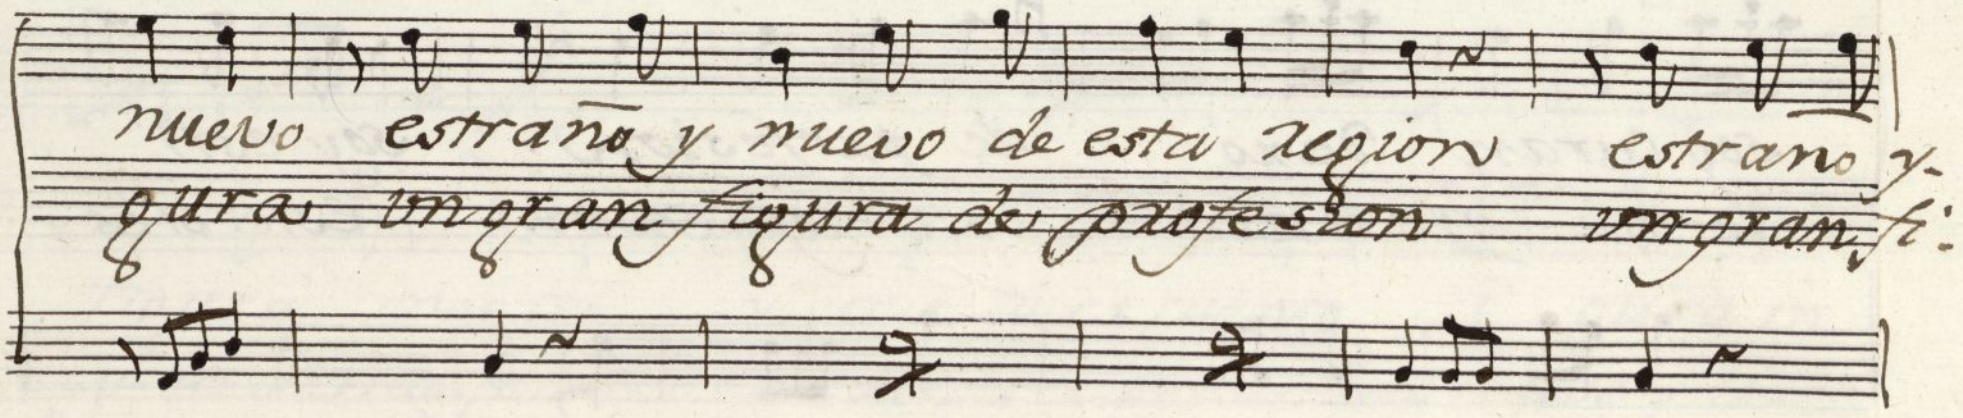 nuevo estraño y nuevo de esta region estraño y-
gura un gran figura de profesion un gran fi-